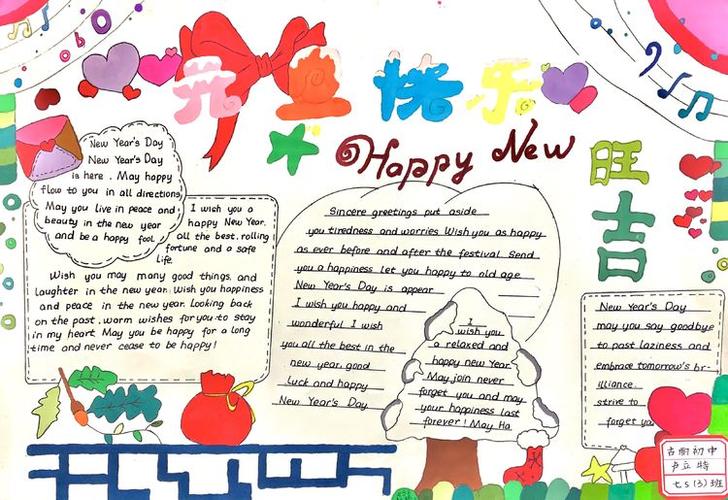 元旦快乐
Happy New
旺
吉
New Year's Day
New Year's Day
is here . May happy
flow to you in all directions
May you live in peace and
beauty in the new year
and be a happy fool
I wish you a
happy New Year.
all the best, rolling
fortune and a safe
life.
Wish you may many good things, and
laughter in the new year. Wish you happiness
and peace in the new year. looking back
on the past, worm wishes for you to stay
in my heart. May you be happy for a long
time and never cease to be happy!
Sincere greetings put aside
you tiredness and worries Wish you as happy
as ever before and after the festival. Send
you a happiness let you happy to old age
New Year's Day is appear
I wish you happy and
wonderful I wish
you all the best in the
new year, good
Luck and happy
New Year's Day
I
wish you
a relaxed and
happy new Year
May join never
forget you and may
your happiness last
forever ! May Ha
New Year's Day
may you say goodbye
to past laziness and
embrace tomorrow's br-
illiance.
strive to
forget yo
初中
七5(3)班